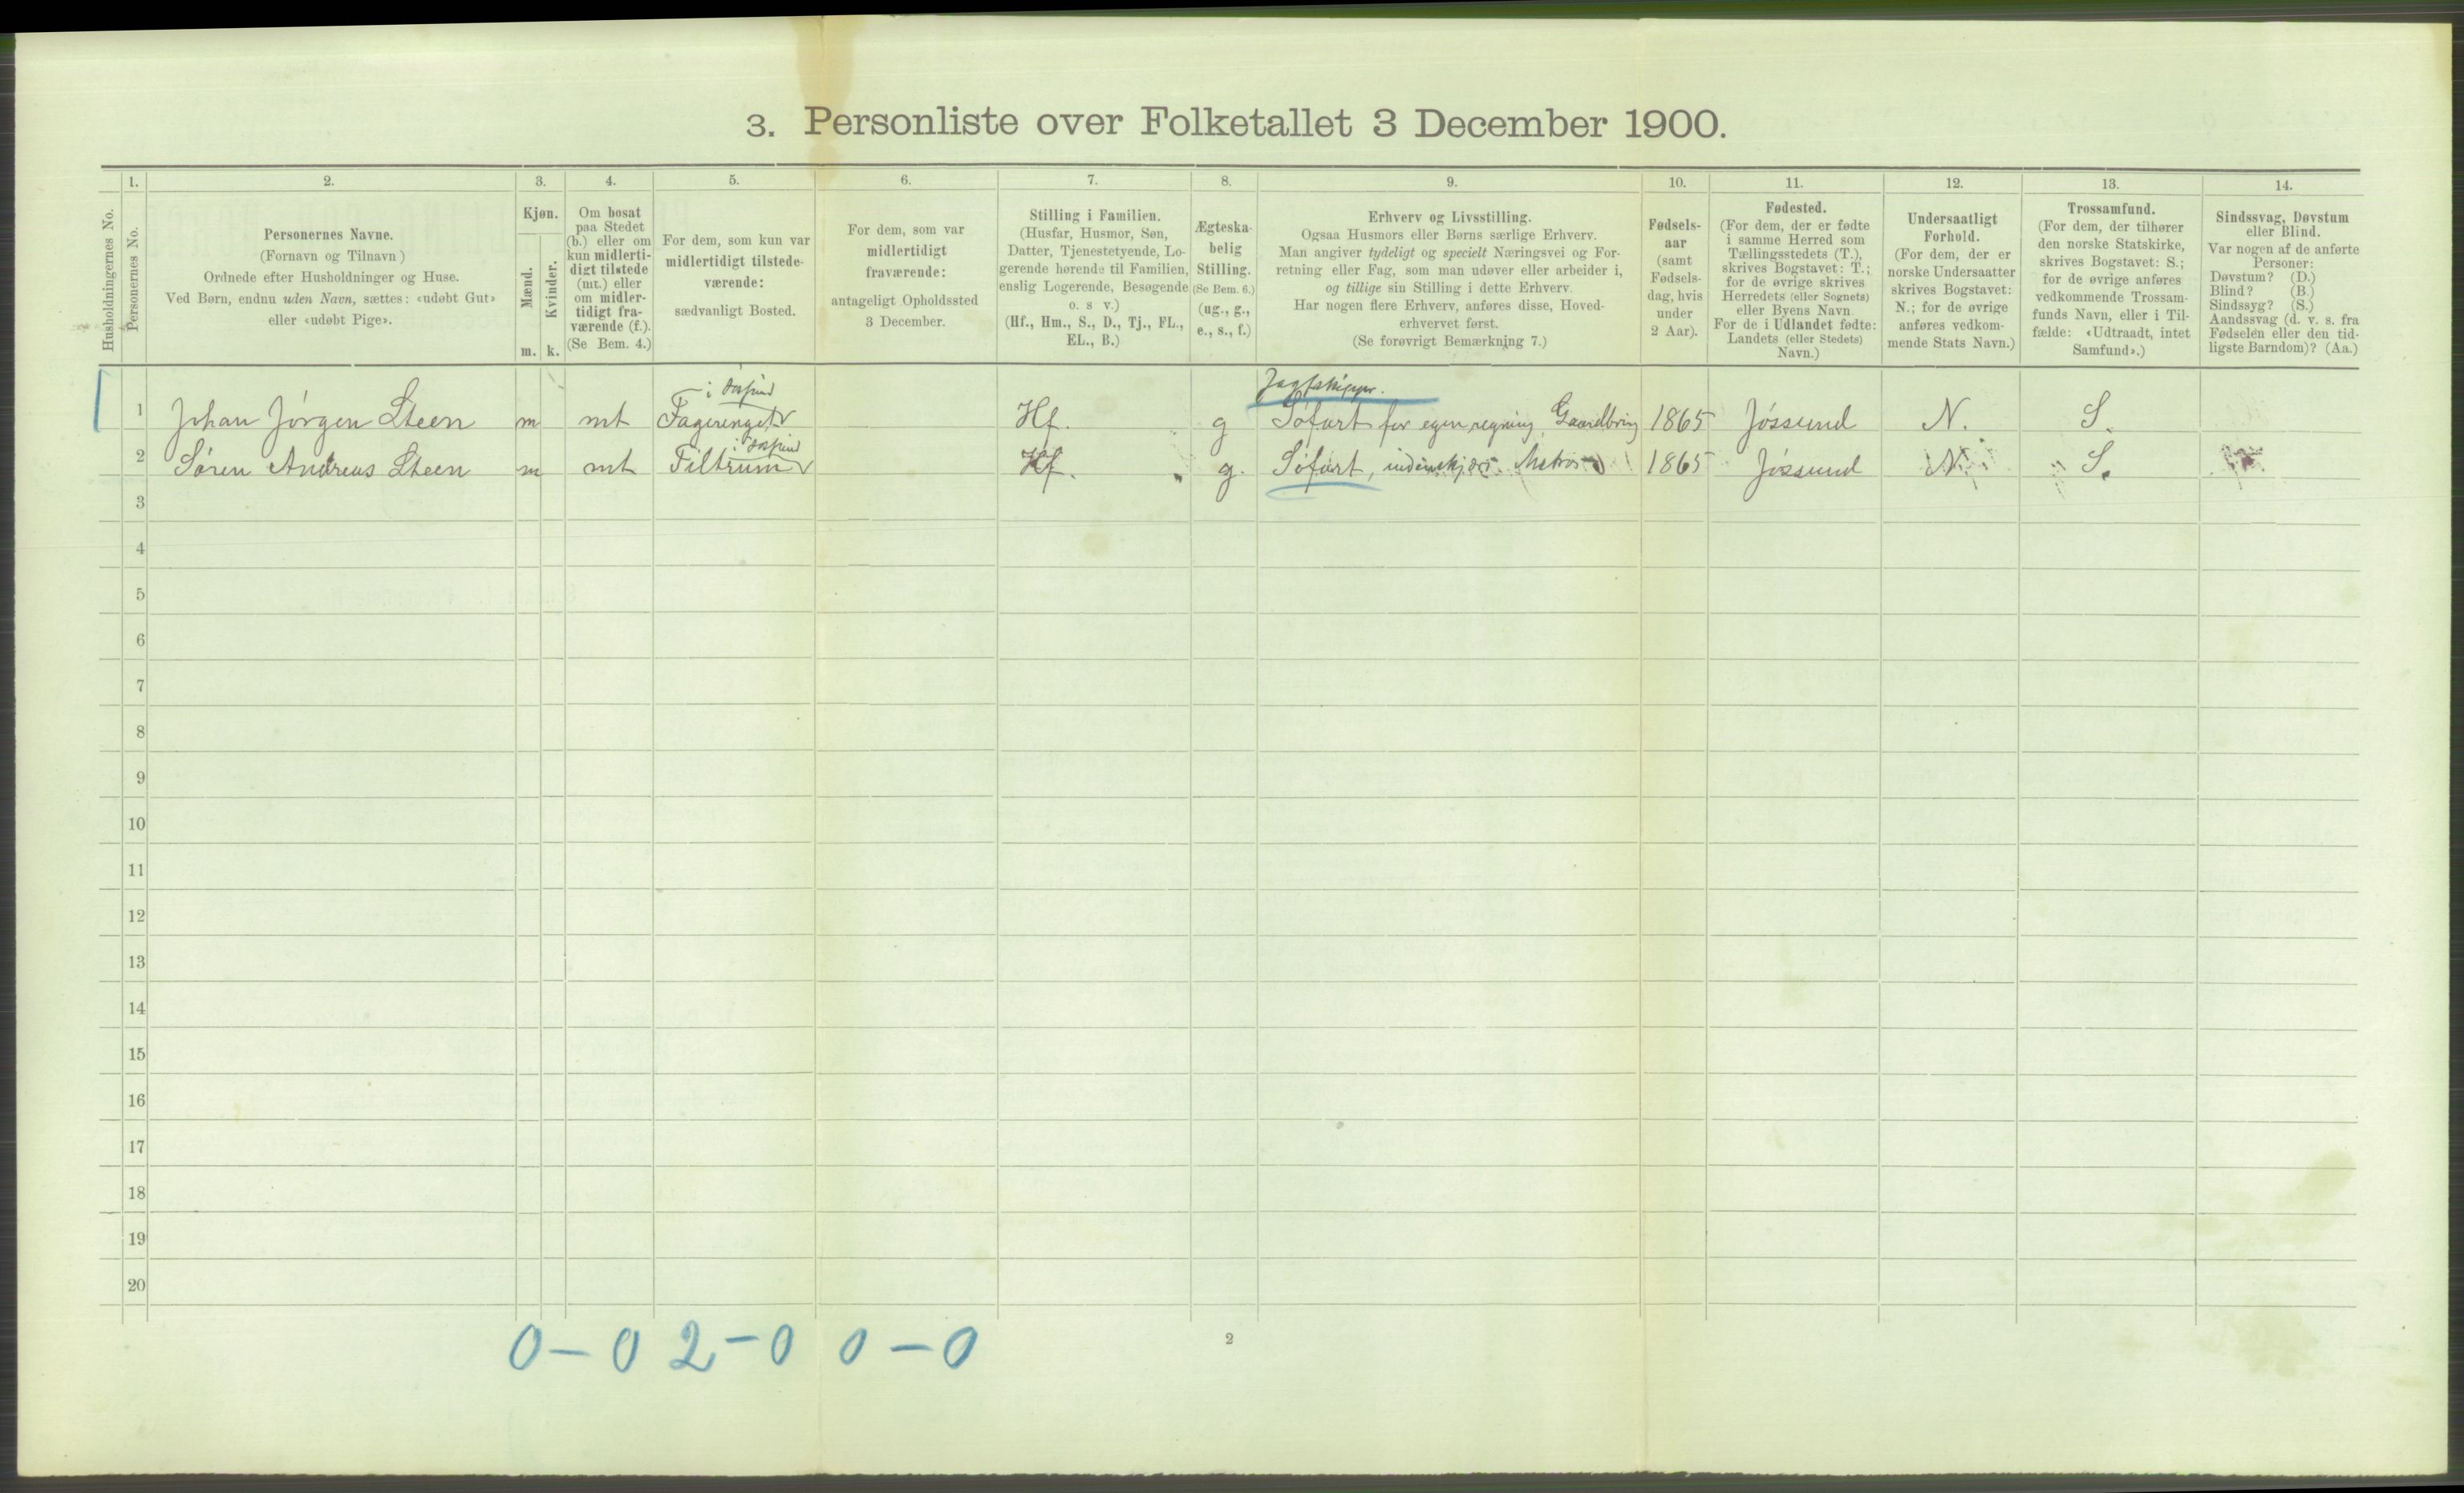 3. Personliste over Folketallet 3 December 1900.
1. 2. 3. 4. 5. 6. 7. 8. 9. 10. 11. 12. 13. 14.
Husholdningernes No.
Personernes No.
Personernes Navne.
(Fornavn og Tilnavn)
Ordnede efter Husholdninger og Huse.
Ved Børn, endnu uden Navn, sættes: «udøbt Gut»
eller «udøbt Pige».
Kjøn.
Mænd.
Kvinder.
m. k.
Om bosat
paa Stedet
(b.) eller om
kun midlerti-
digt tilstede
(mt.) eller
om midler-
tidigt fra-
værende (f.).
(Se Bem. 4.)
For dem, som kun var
midlertidigt tilstede-
værende:
sædvanligt Bosted.
For dem, som var
midlertidigt
fraværende:
antageligt Opholdssted
3 December.
Stilling i Familien.
(Husfar, Husmor, Søn,
Datter, Tjenestetyende, Lo-
gerende hørende til Familien,
enslig Logerende, Besøgende
o. s v.)
(Hf., Hm., S., D., Tj., FL.,
EL., B.)
Ægteska-
belig
Stilling.
(Se Bem. 6.)
(ug., g.,
e., s., f.)
Erhverv og Livsstilling.
Ogsaa Husmors eller Børns særlige Erhverv.
Man angiver tydeligt og specielt Næringsvei og For-
retning eller Fag, som man udøver eller arbeider i,
og tillige sin Stilling i dette Erhverv.
Har nogen flere Erhverv, anføres disse, Hoved-
erhvervet først.
(Se forøvrigt Bemærkning 7.)
Fødsels-
aar
(samt
Fødsels-
dag, hvis
under
2 Aar).
Fødested.
(For dem, der er fødte
i samme Herred som
Tællingsstedets (T.),
skrives Bogstavet: T.;
for de øvrige skrives
Herredets (eller Sognets)
eller Byens Navn.
For de i Udlandet fødte:
Landets (eller Stedets)
Navn.)
Undersaatligt
Forhold.
(For dem, der er
norske Undersaatter
skrives Bogstavet:
N.; for de øvrige
anføres vedkom-
mende Stats Navn.)
Trossamfund.
(For dem, der tilhører
den norske Statskirke,
skrives Bogstavet: S.;
for de øvrige anføres
vedkommende Trossam-
funds Navn, eller i Til-
fælde: «Udtraadt, intet
Samfund».)
Sindssvag, Døvstum
eller Blind.
Var nogen af de anførte
Personer:
Døvstum? (D.)
Blind? (B.)
Sindssyg? (S.)
Aandssvag (d. v. s. fra
Fødselen eller den tid-
ligste Barndom)? (Aa.)
Jagtskipper.
1 Johan Jörgen Steen m mt Hf. g Söfart for egen regning 1865 Jössund N. S.
2 Sören Andreas Steen m mt Hf. g. Söfart, indenskjærs Matros 1865 Jössund N. S.
3
4
5
6
7
8
9
10
11
12
13
14
15
16
17
18
19
20
0 – 0 2 – 0 0 – 0
2